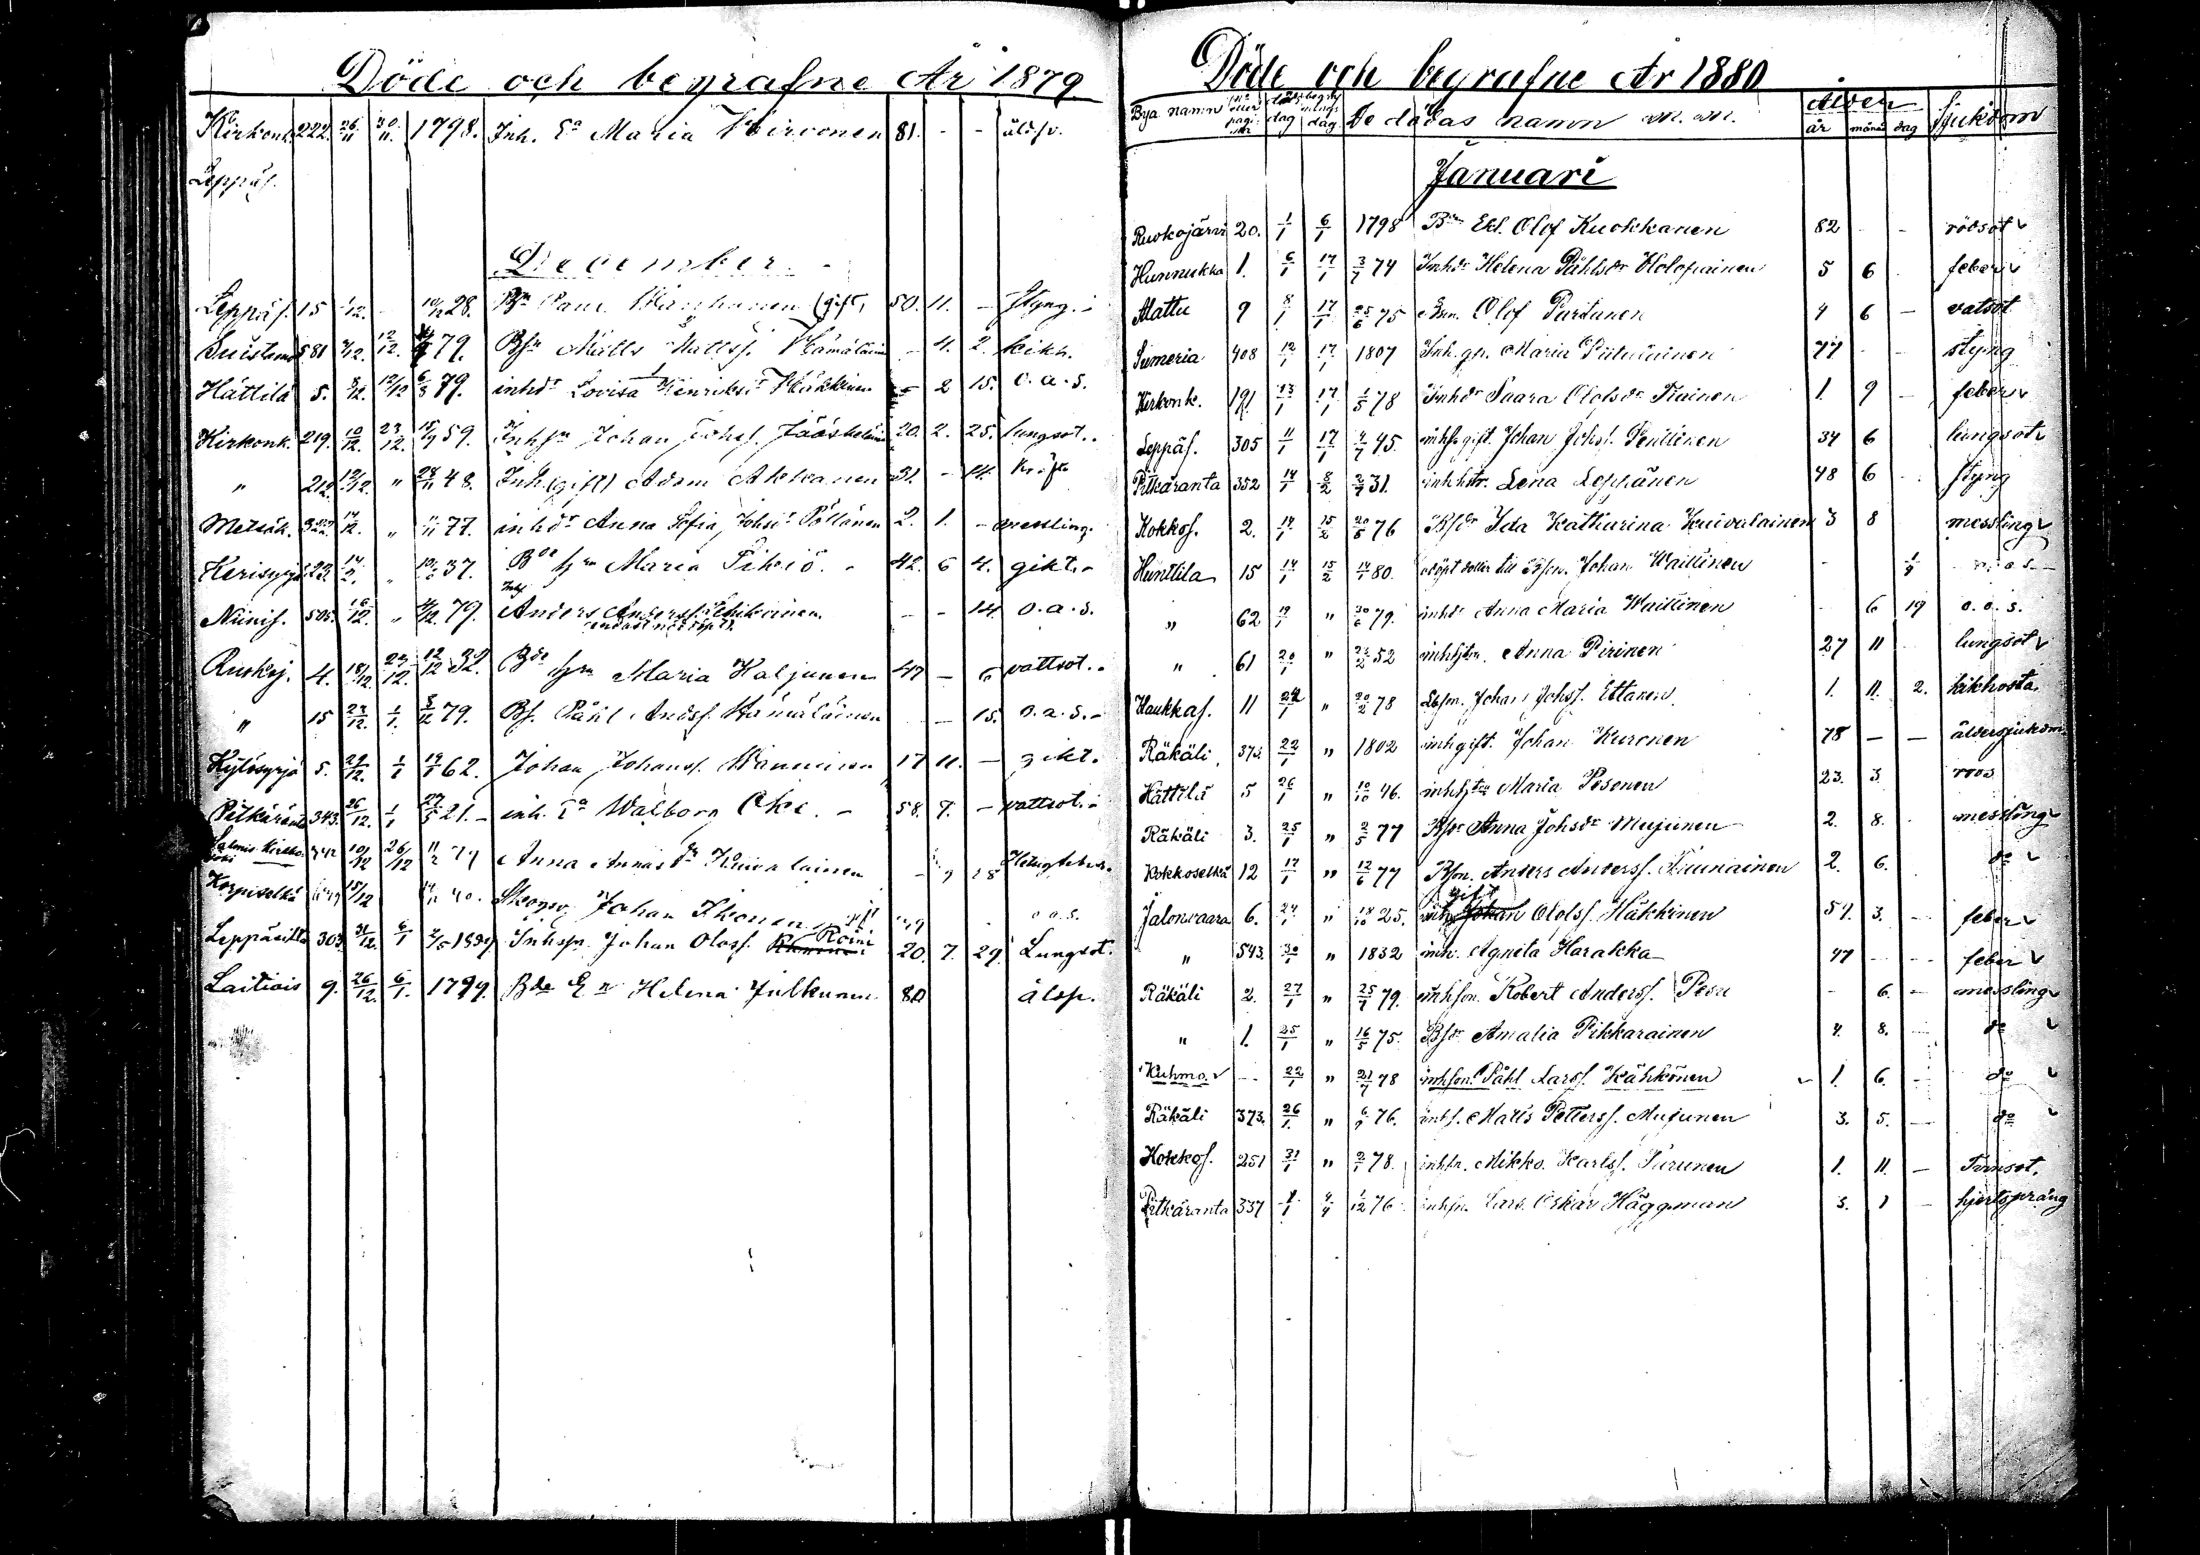 Döde och begrafne År 1879
Kirkonk. 222. 26/11 30/11. 1798. Inh. Ea Maria Hirvonen 81. - - åldsv.
Leppäs.
December.
Leppäs. 15 1/12. - 10/12 28. (gift) 50. 11. - styng.
Suistamo 581 12/12. 79. Bsn Matts Mattss. Hämäläinen - 4. 2. kikh.
Hättilä 5. 8/12. 12/12 6/3 79. inhdr Lovisa Henriksdr Häkkinen - 2 15. o.a.s.
Kirkonk. 219. 10/12. 23/12. 15/9 59. Inhsn Johan Johss. Jääskeläinen 20. 2. 25. lungsot.
" 212. 12/12. " 28/11 48. Inh. (gift) Adam Akkanen 31. - 14.
Metsäk. 322. 14/12. " 11/11 77. inhdr Anna Sofia Johsdr Pöllänen 2. 1. - messling.
Kerisyrjä 23 " 37. Bde hru Maria Tihiö. 42. 6 4. gikt.
Niinis. 505. 16/12. " 2/12. 79. Inhs Anders Anderss. - - 14. o.a.s.
endast nöddöpt
Ruskoj. 4. 18/12. 23/12. 12/12 32. Bde hru Maria Kaljunen 47 - 6 vattsot.
" 15 23/12. 1/1. 8/12 79. Bs. Påhl Andss. Hämäläinen - 15. o.a.s.
Kylösyrjä 5. 24/12. 1/1 19/1 62. Johan Johanss. Wänninen 17 11. - gikt.
Pitkäranta 343. 26/12. 1/1 27/5 21. inh. Ea Walborg Oke. 58. 7. - vattsot.
Salmis Kirkkojoki 10/12 26/12 11/2 79 Anna Annasdr Kuivalainen - 9 28
Korpiselkä 15/12 40. Skogsv Johan Ikonen gift o.a.s.
Leppäsilta 303. 31/12. 6/1 2/5 1859 Inhsn. Johan Olofs. Roini 20. 7. 29. Lungsot.
Laitiois 9. 26/12. 6/1. 1799. Bde E Helena Julkunen 80 ålsv.
Döde och begrafne År 1880
Bya namn No eller pagina dödsdag begrafningsdag De dödas namn m. m. Ålder år månad dag Sjukdom
Januari
Ruokojärvi 20. 1/1 6/1 1798 Bde Ekl. Olof Kuokkanen 82 - - rödsot
Hunnukka 1. 6/1 17/1 3/7 74 Inhdr Helena Påhlsdr Holopainen 5 6 - feber
Alattu 9 8/1 17/1 25/6 75 Olof Partanen 4 6 - vatsot
Sumeria 408 12/1 17/1 1807 Inh. gn. Maria Piitulainen 77 - - styng
Kirkonk. 191. 13/1 17/1 1/5 78 Inhdr Saara Olofsdr Rainen 1 9 - feber
Leppäs. 305 11/1 17/1 4/7 45. inhs gift. Johan Johss. Penttinen 34 6 lungsot
Pitkäranta 352 14/1 8/2 2/7 31. inhhstr. Lena Leppänen 48 6 - styng
Kokkos. 2. 14/1 15/2 20/5 76 Bsdr Ida Katharina Kuivalainen 3 8 messling
Hunttila 15 14/1 15/2 14/1 80. odöpt dotter till Bsn. Johan Waittinen - 1/9 o.a.s.
" 62 19/1 " 30/6 79. inhdr Anna Maria Waittinen - 6 19 o.a.s.
" 61 20/1 " 22/2 52 inhhstru. Anna Pirinen 27 11 lungsot
Haukkas. 11 24/1 " 20/2 78 Lbsn. Johan Johss. Ettanen. 1. 11. 2. kikhosta
Räkäli 373. 22/1 " 1802 inh gift. Johan Kuronen 78 - - åldersjukdom
Hättilä 5 26/1 " 10/10 46. inhhstru Maria Pesonen 23. 3. roos
Räkäli 3. 25/1 " 2/5 77 Bsdr Anna Johsdr Mujunen 2. 8. messling
Kokkoselkä 12 17/1 " 12/6 77 Bson. Anders Anderss. Kuunainen 2. 6. do
Jalonvaara 6. 24/1 " 18/10 25. gift Olofss. Häkkinen 54. 3. - feber
" 543. 30/1 " 1832 inh. Agneta Harakka 47 - - feber
Räkäli 2. 27/1 " 25/7 79. inhson. Robert Anderss. Pesu - 6. - messling
" 1. 25/1 " 16/5 75. Bsdr Amalia Pikkarainen 4. 8. do
Kuhmo. - 22/1 " 21/7 78 inhson. Påhl Larss. Kähkönen 1. 6. - do
Räkäli 373. 26/1. " 6/9 76. inhs. Matts Petterss. Mujunen 3. 5. - do
Kokkos. 251 31/1 " 2/1 78. inhsn. Mikko Karlss. Turunen 1. 11. - Tvinsot.
Pitkäranta 337 1/1 4/4 1/12 76 inhsn. Lars Oskar Häggman 3. 1 - hjertspräng